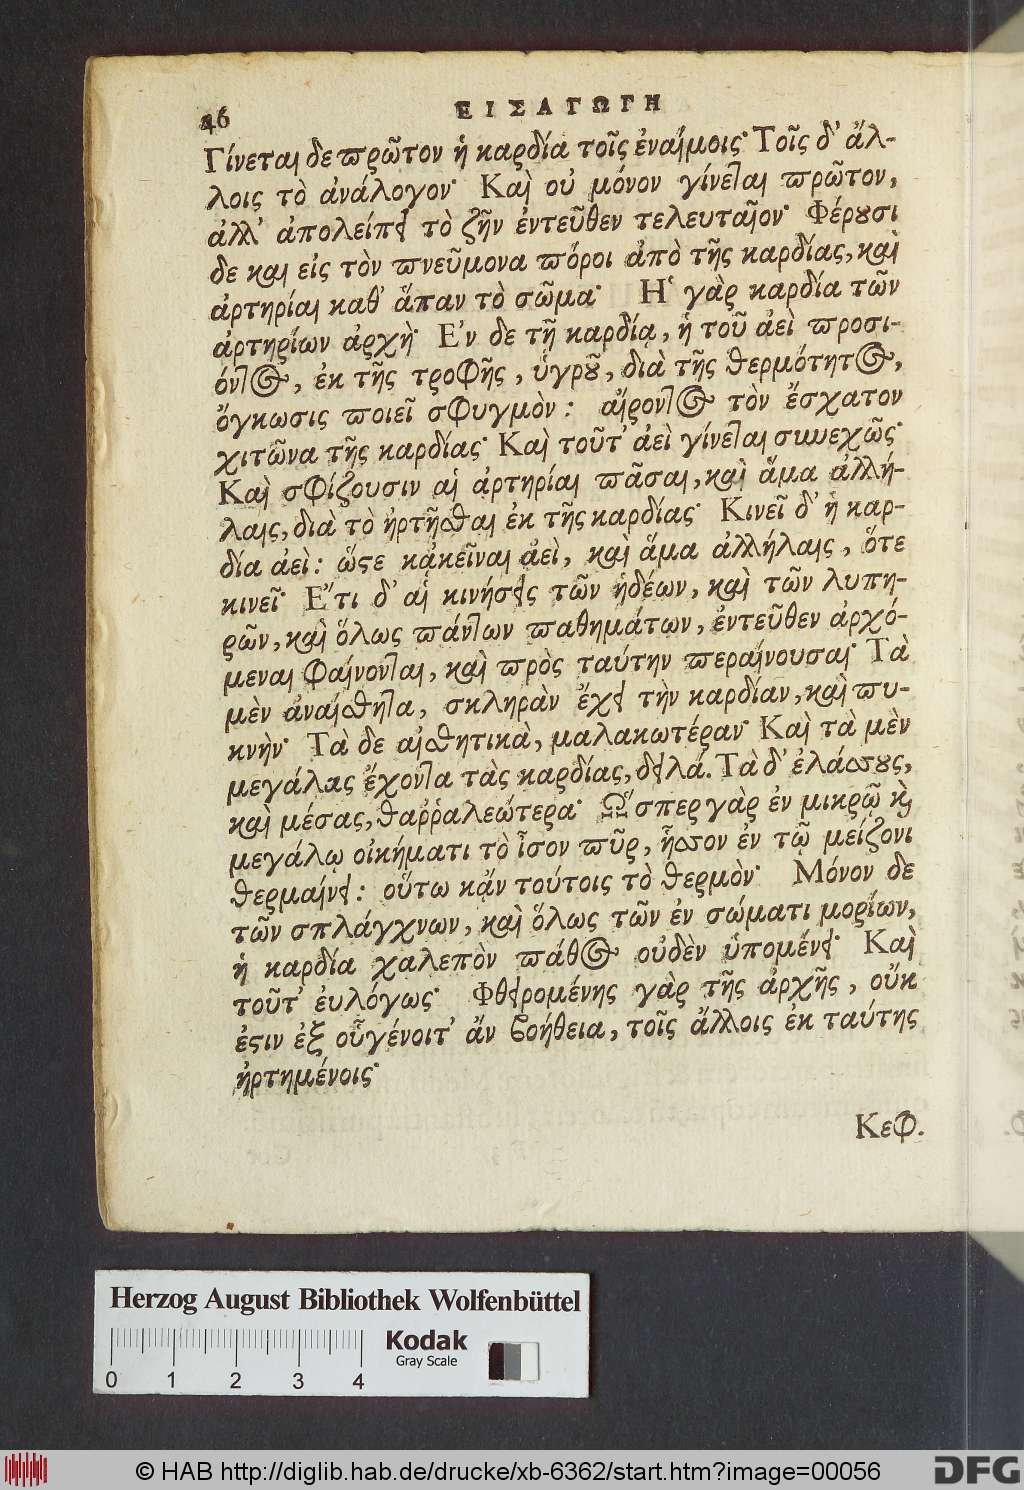 46 ΕΙΣΑΓΩΓΗ
Γίνεται δε πρῶτον ἡ καρδία τοῖς ἐναίμοις· Τοῖς δ᾽ ἄλ-
λοις τὸ ἀνάλογον· Καὶ οὐ μόνον γίνεται πρῶτον,
ἀλλ᾽ ἀπολείπει τὸ ζῆν ἐντεῦθεν τελευταῖον· Φέρουσι
δε και εἰς τὸν πνεῦμονα πόροι ἀπὸ τῆς καρδίας, καὶ
ἀρτηρίαι καθ᾽ ἅπαν τὸ σῶμα· Ἡ γὰρ καρδία τῶν
ἀρτηρίων ἀρχὴ· Ἐν δε τῇ καρδίᾳ, ἡ τοῦ ἀεὶ προσι-
όντος, ἐκ τῆς τροφῆς, ὑγροῦ, διὰ τῆς θερμότητος,
ὄγκωσις ποιεῖ σφυγμὸν: αἴροντος τὸν ἔσχατον
χιτῶνα τῆς καρδίας· Καὶ τοῦτ᾽ ἀεὶ γίνεται συνεχῶς·
Καὶ σφίζουσιν αἱ ἀρτηρίαι πᾶσαι, καὶ ἅμα ἀλλή-
λαις, διὰ τὸ ἠρτῆσθαι ἐκ τῆς καρδίας· Κινεῖ δ᾽ ἡ καρ-
δία ἀεὶ: ὥστε κἀκεῖναι ἀεὶ, καὶ ἅμα ἀλλήλαις, ὅτε
κινεῖ· Ἔτι δ᾽ αἱ κινήσεις τῶν ἡδέων, καὶ τῶν λυπη-
ρῶν, καὶ ὅλως πάντων παθημάτων, ἐντεῦθεν ἀρχό-
μεναι φαίνονται, καὶ πρὸς ταύτην περαίνουσαι· Τὰ
μὲν ἀναίσθητα, σκληρὰν ἔχει τὴν καρδίαν, καὶ πυ-
κνὴν· Τὰ δε αἰσθητικὰ, μαλακωτέραν· Καὶ τὰ μὲν
μεγάλας ἔχοντα τὰς καρδίας, δειλά. Τὰ δ᾽ ἐλάσσους,
καὶ μέσας, θαῤῥαλεώτερα· Ὥσπερ γὰρ ἐν μικρῷ καὶ
μεγάλῳ οἰκήματι τὸ ἴσον πῦρ, ἧσσον ἐν τῷ μείζονι
θερμαίνει: οὕτω κἀν τούτοις τὸ θερμὸν· Μόνον δε
τῶν σπλάγχνων, καὶ ὅλως τῶν ἐν σώματι μορίων,
ἡ καρδία χαλεπὸν πάθος οὐδὲν ὑπομένει· Καὶ
τοῦτ᾽ ἐυλόγως· Φθειρομένης γὰρ τῆς ἀρχῆς, οὔκ
ἐστιν ἐξ οὗ γένοιτ᾽ ἄν βοήθεια, τοῖς ἄλλοις ἐκ ταύτης
ἠρτημένοις·
Κεφ.
Herzog August Bibliothek Wolfenbüttel
Kodak
Gray Scale
0 1 2 3 4
© HAB http://diglib.hab.de/drucke/xb-6362/start.htm?image=00056
DFG